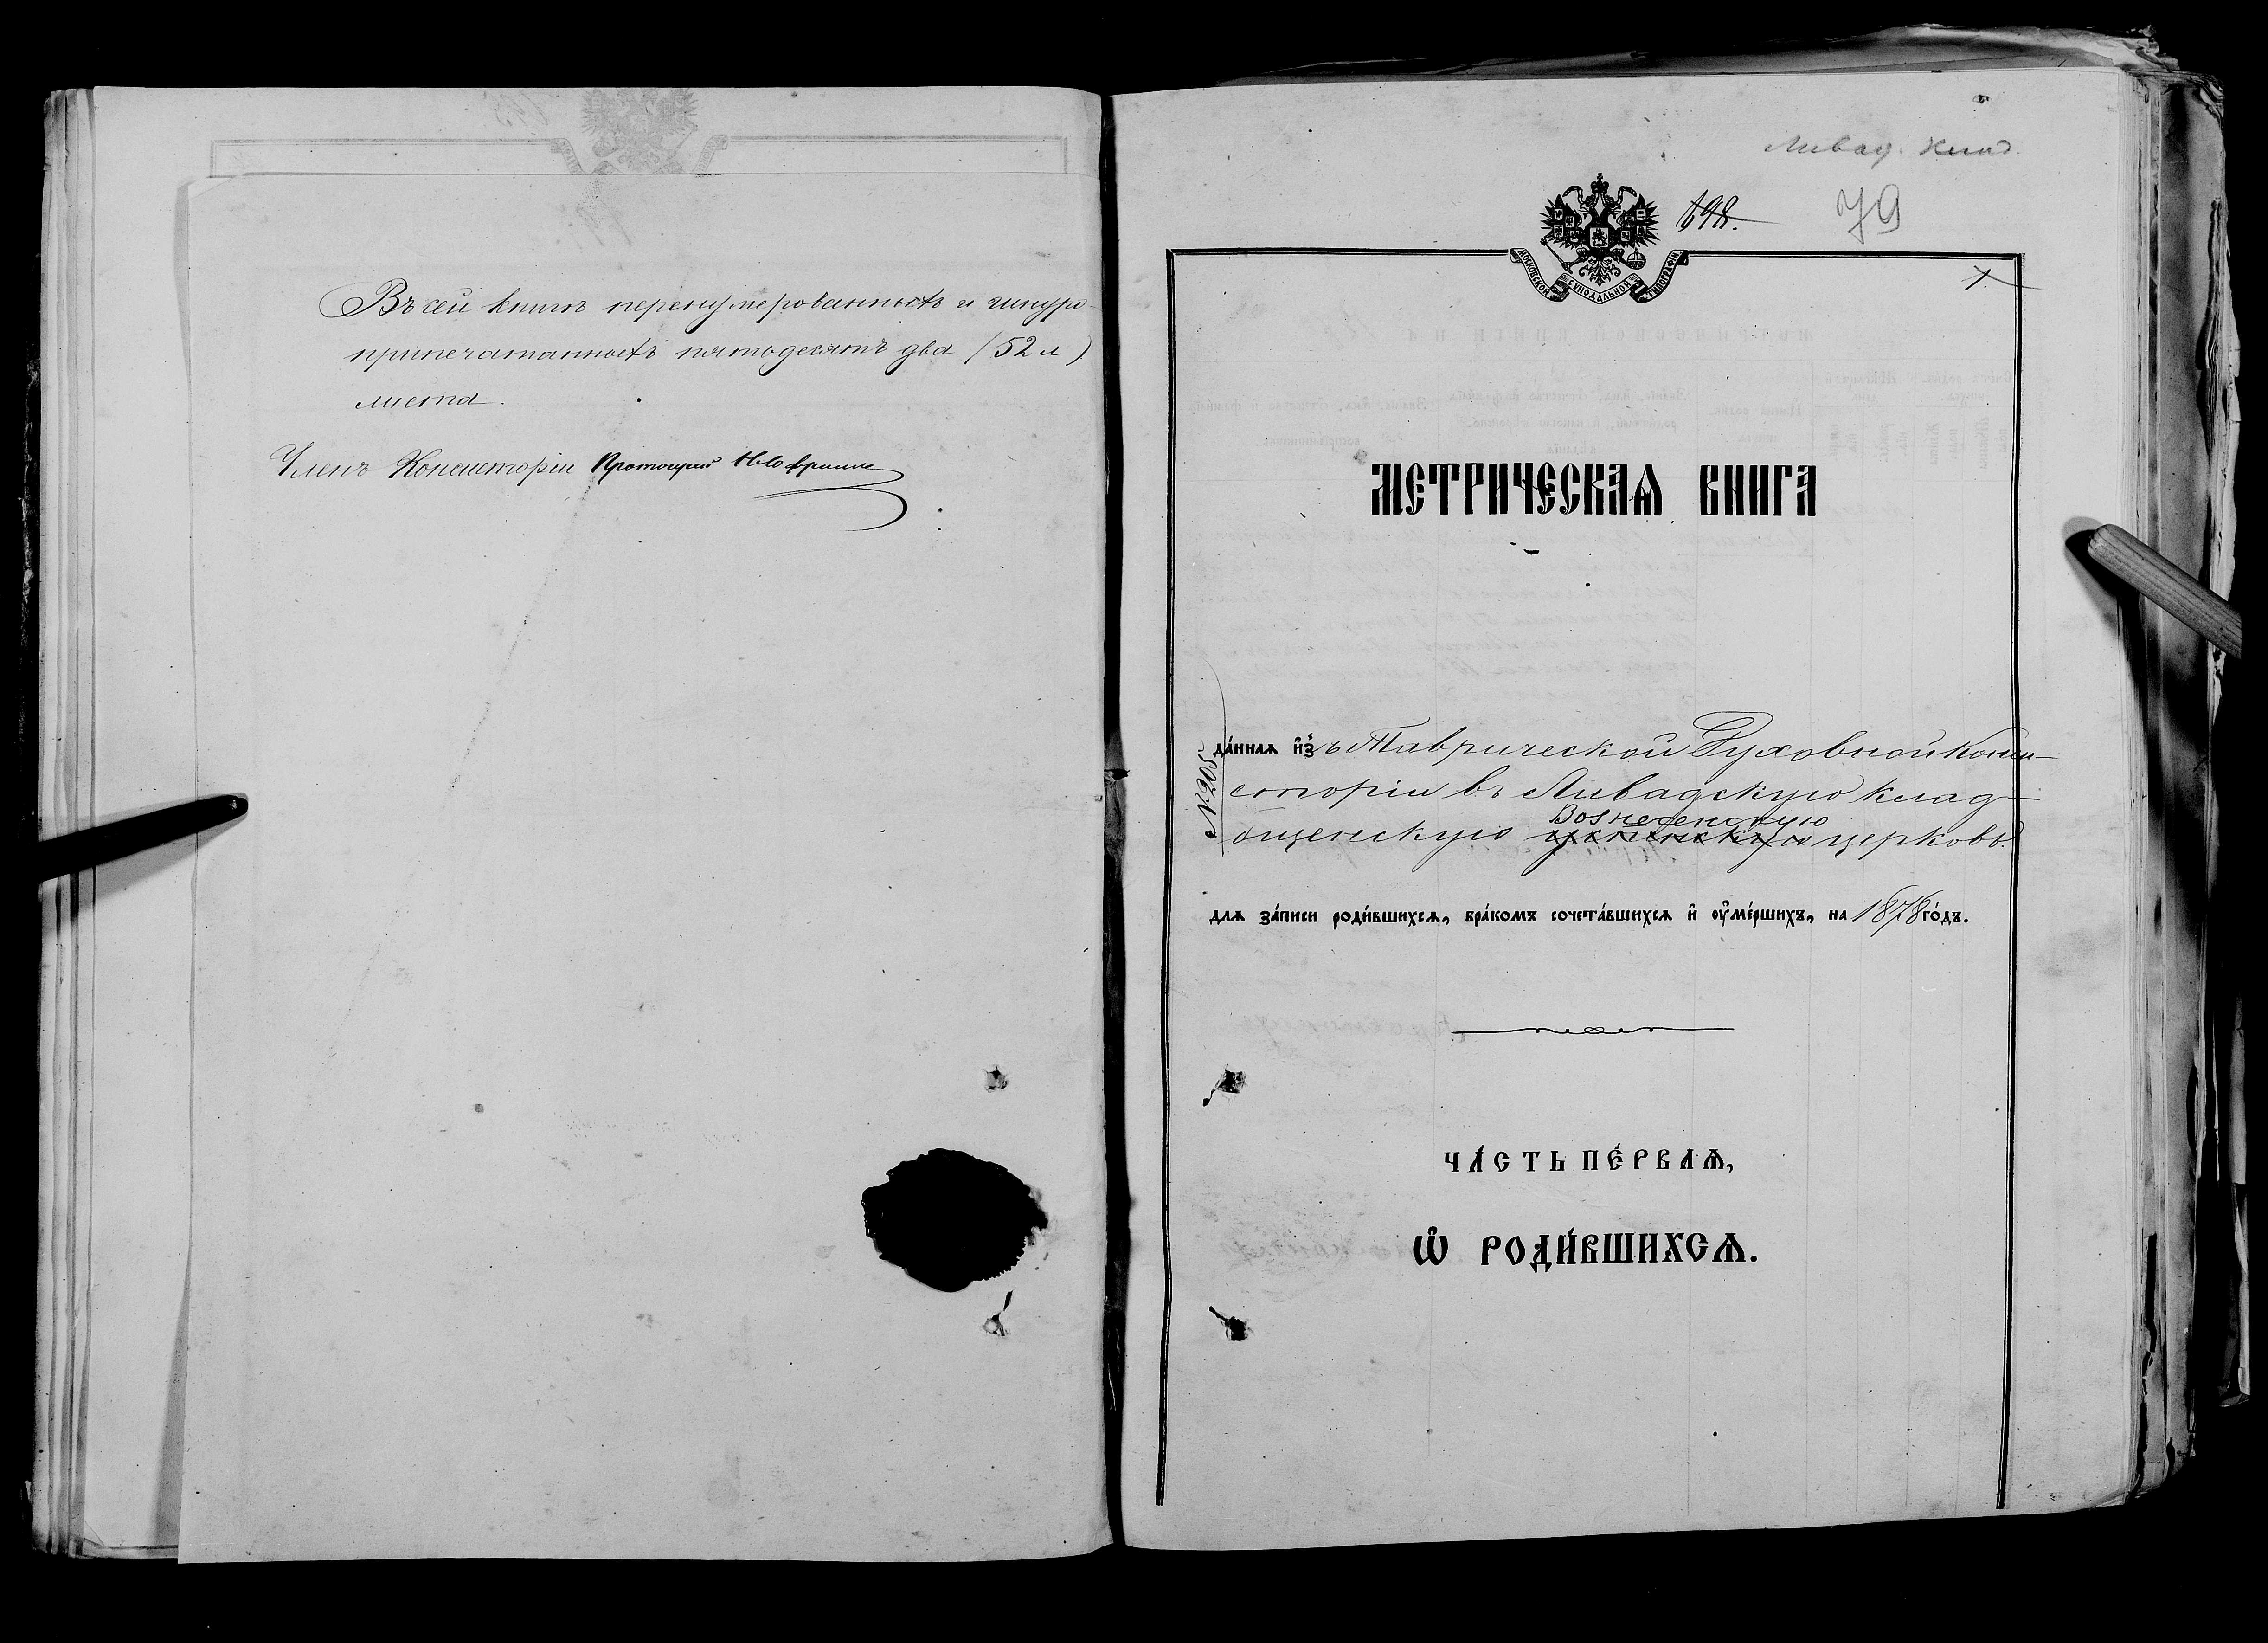 Въ сей книгѣ перенумерованныхъ и шнуро-
припечатанныхъ пятьдесятъ два (52 л)
листа.
Членъ Консисторіи Протоіерей
Ливад. клад.
698.
79
1.
МОСКОВСКОЙ СѴНОДАЛЬНОЙ ТИПОГРАФІИ
МЕТРИЧЕСКАѦ КНИГА
№ 205
да́ннаѧ и҆зъ Таврической Духовной Конси-
сторіи въ Ливадскую клад-
Вознесенскую
бищенскую церковь.
длѧ за́писи роди́вшихсѧ, бра́комъ сочета́вшихсѧ и҆ ᲂу҆ме́ршихъ, на 1878 го́дъ.
ЧА́СТЬ ПЕ́РВАѦ,
Ѽ РОДИ́ВШИХСѦ.